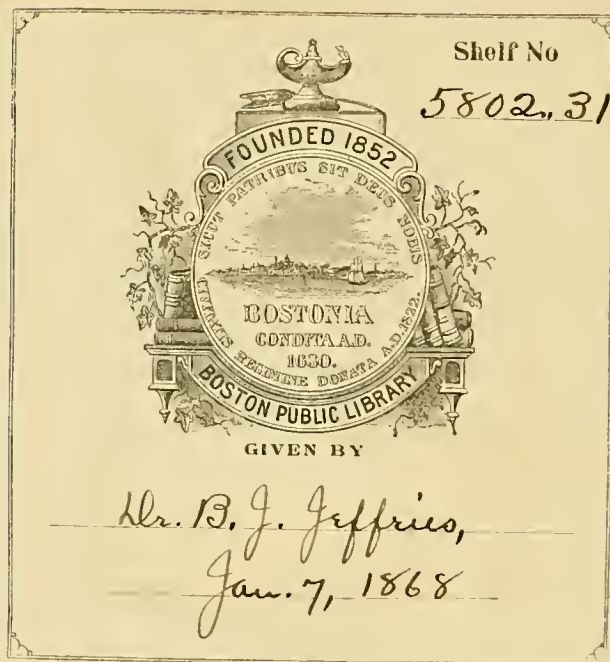 Shelf No
5802.31
FOUNDED 1852
SICUT PATRIBUS SIT DEUS NOBIS
BOSTONIA
CONDITA A.D.
1630.
CIVITATIS REGIMINE DONATA A.D. 1822.
BOSTON PUBLIC LIBRARY
GIVEN BY
Dr. B. J. Jeffries,
Jan. 7, 1868